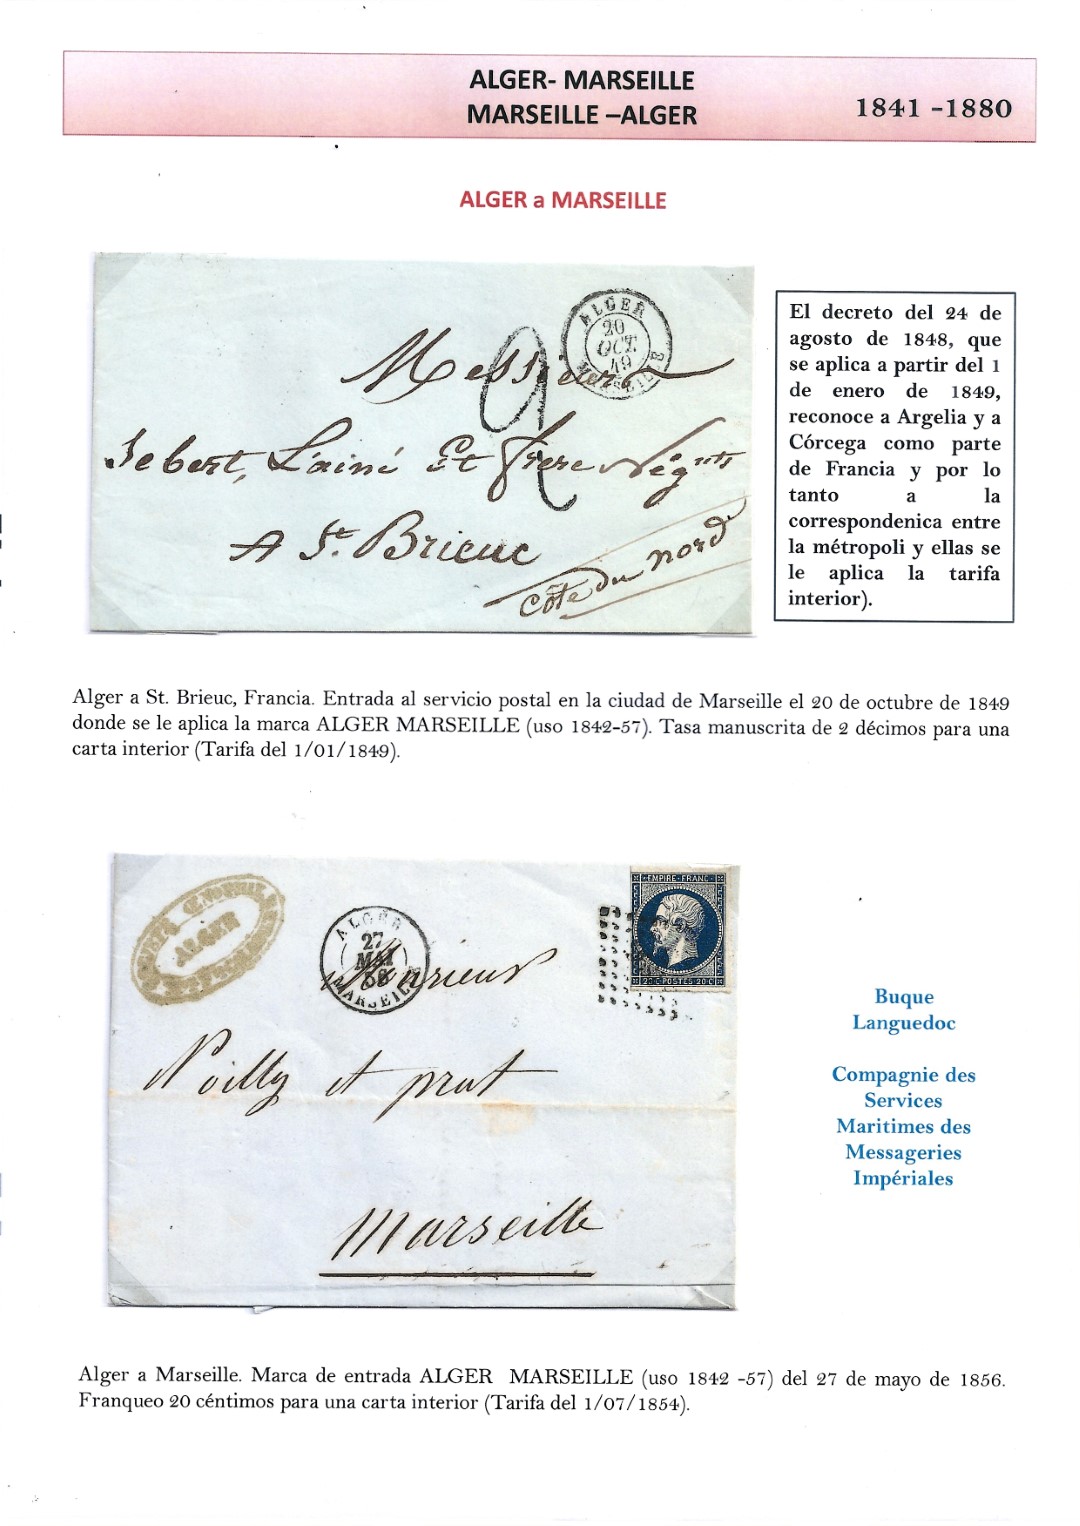 ALGER- MARSEILLE
MARSEILLE –ALGER
1841 -1880
ALGER a MARSEILLE
ALGER
20
OCT
49
Messieurs
Sebert, L'ainé Et frere Nég.nts
A St. Brieuc
Côte du nord
2
El decreto del 24 de
agosto de 1848, que
se aplica a partir del 1
de enero de 1849,
reconoce a Argelia y a
Córcega como parte
de Francia y por lo
tanto a la
correspondenica entre
la métropoli y ellas se
le aplica la tarifa
interior).
Alger a St. Brieuc, Francia. Entrada al servicio postal en la ciudad de Marseille el 20 de octubre de 1849
donde se le aplica la marca ALGER MARSEILLE (uso 1842-57). Tasa manuscrita de 2 décimos para una
carta interior (Tarifa del 1/01/1849).
ALGER
ALGER
27
MAI
MARSEILLE
EMPIRE FRANC
20 C POSTES 20 C
Monsieur
Noilly et prat
Marseille
Buque
Languedoc
Compagnie des
Services
Maritimes des
Messageries
Impériales
Alger a Marseille. Marca de entrada ALGER MARSEILLE (uso 1842 -57) del 27 de mayo de 1856.
Franqueo 20 céntimos para una carta interior (Tarifa del 1/07/1854).